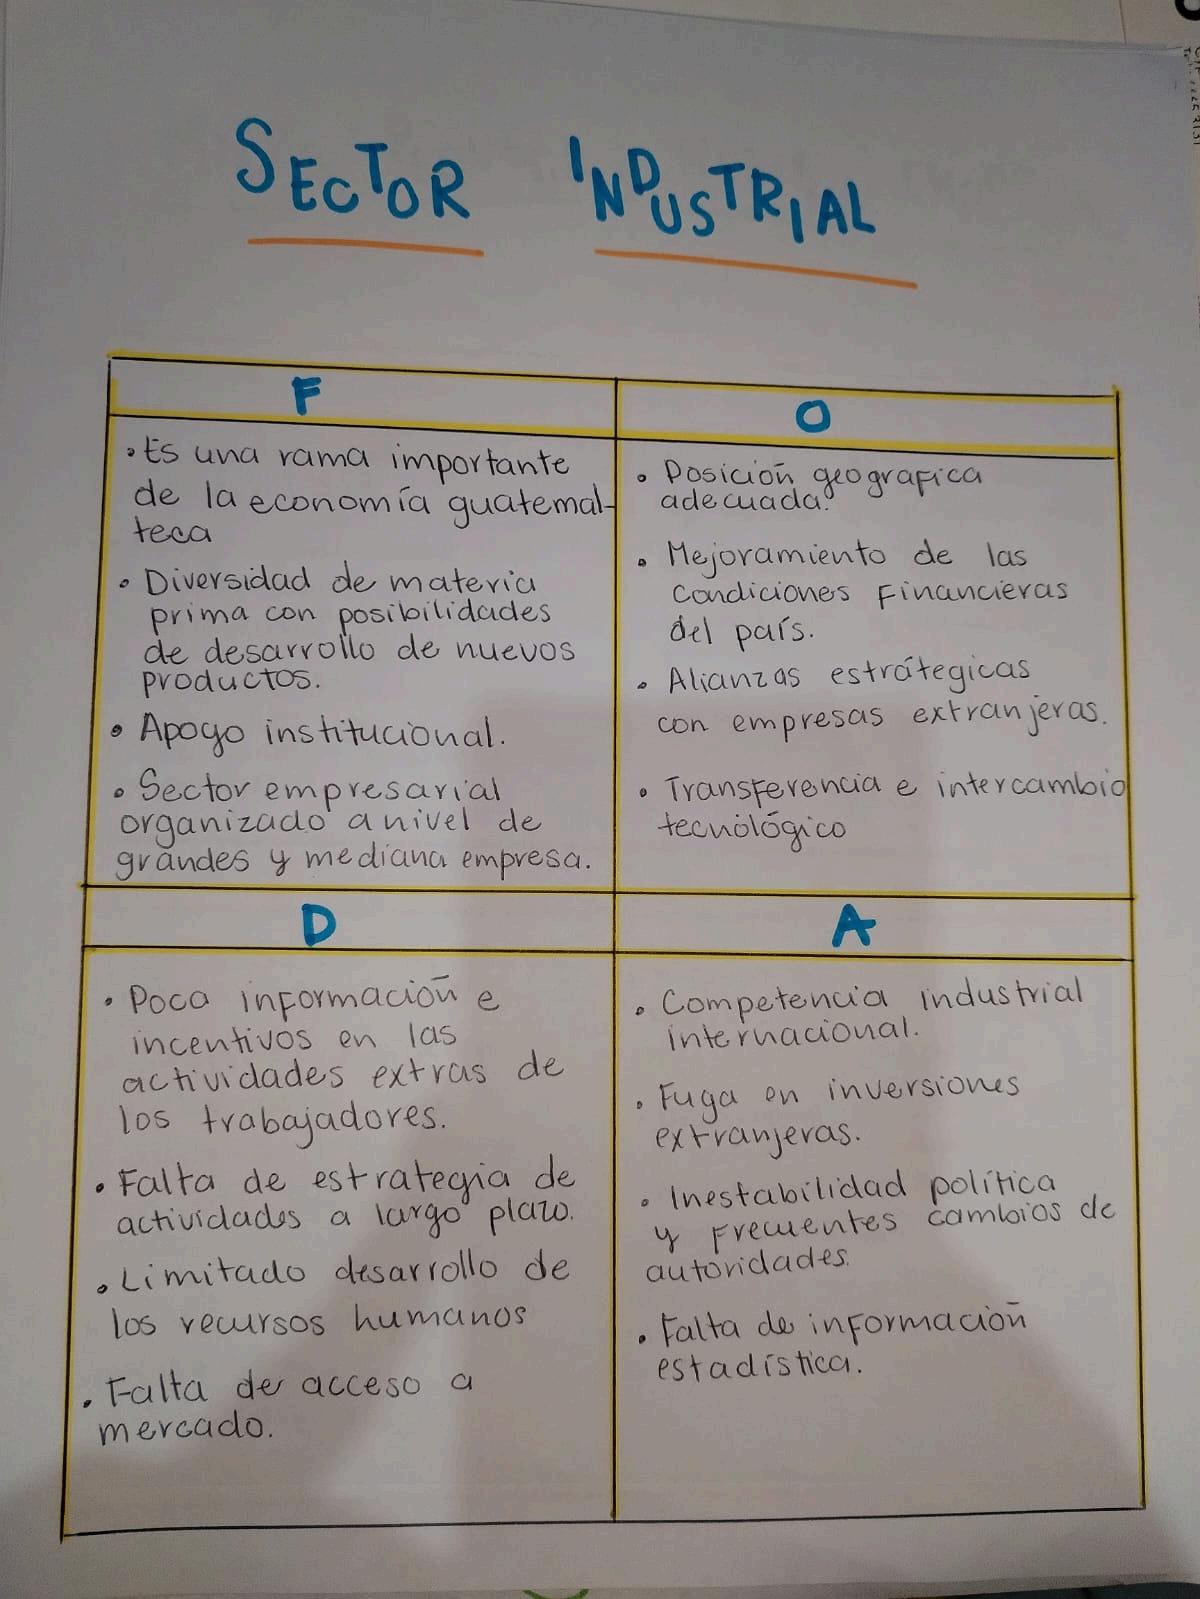 SECTOR INDUSTRIAL
F
• Es una rama importante
de la economía guatemal-
teca
• Diversidad de materia
prima con posibilidades
de desarrollo de nuevos
productos.
• Apoyo institucional.
• Sector empresarial
organizado a nivel de
grandes y mediana empresa.
O
• Posición geografica
adecuada.
• Mejoramiento de las
condiciones financieras
del país.
• Alianzas estrátegicas
con empresas extranjeras.
• Transferencia e intercambio
tecnólógico
D
• Poca información e
incentivos en las
actividades extras de
los trabajadores.
• Falta de estrategia de
actividades a largo plazo.
• Limitado desarrollo de
los recursos humanos
• Falta de acceso a
mercado.
A
• Competencia industrial
internacional.
• Fuga en inversiones
extranjeras.
• Inestabilidad política
y frecuentes cambios de
autoridades.
• Falta de información
estadística.